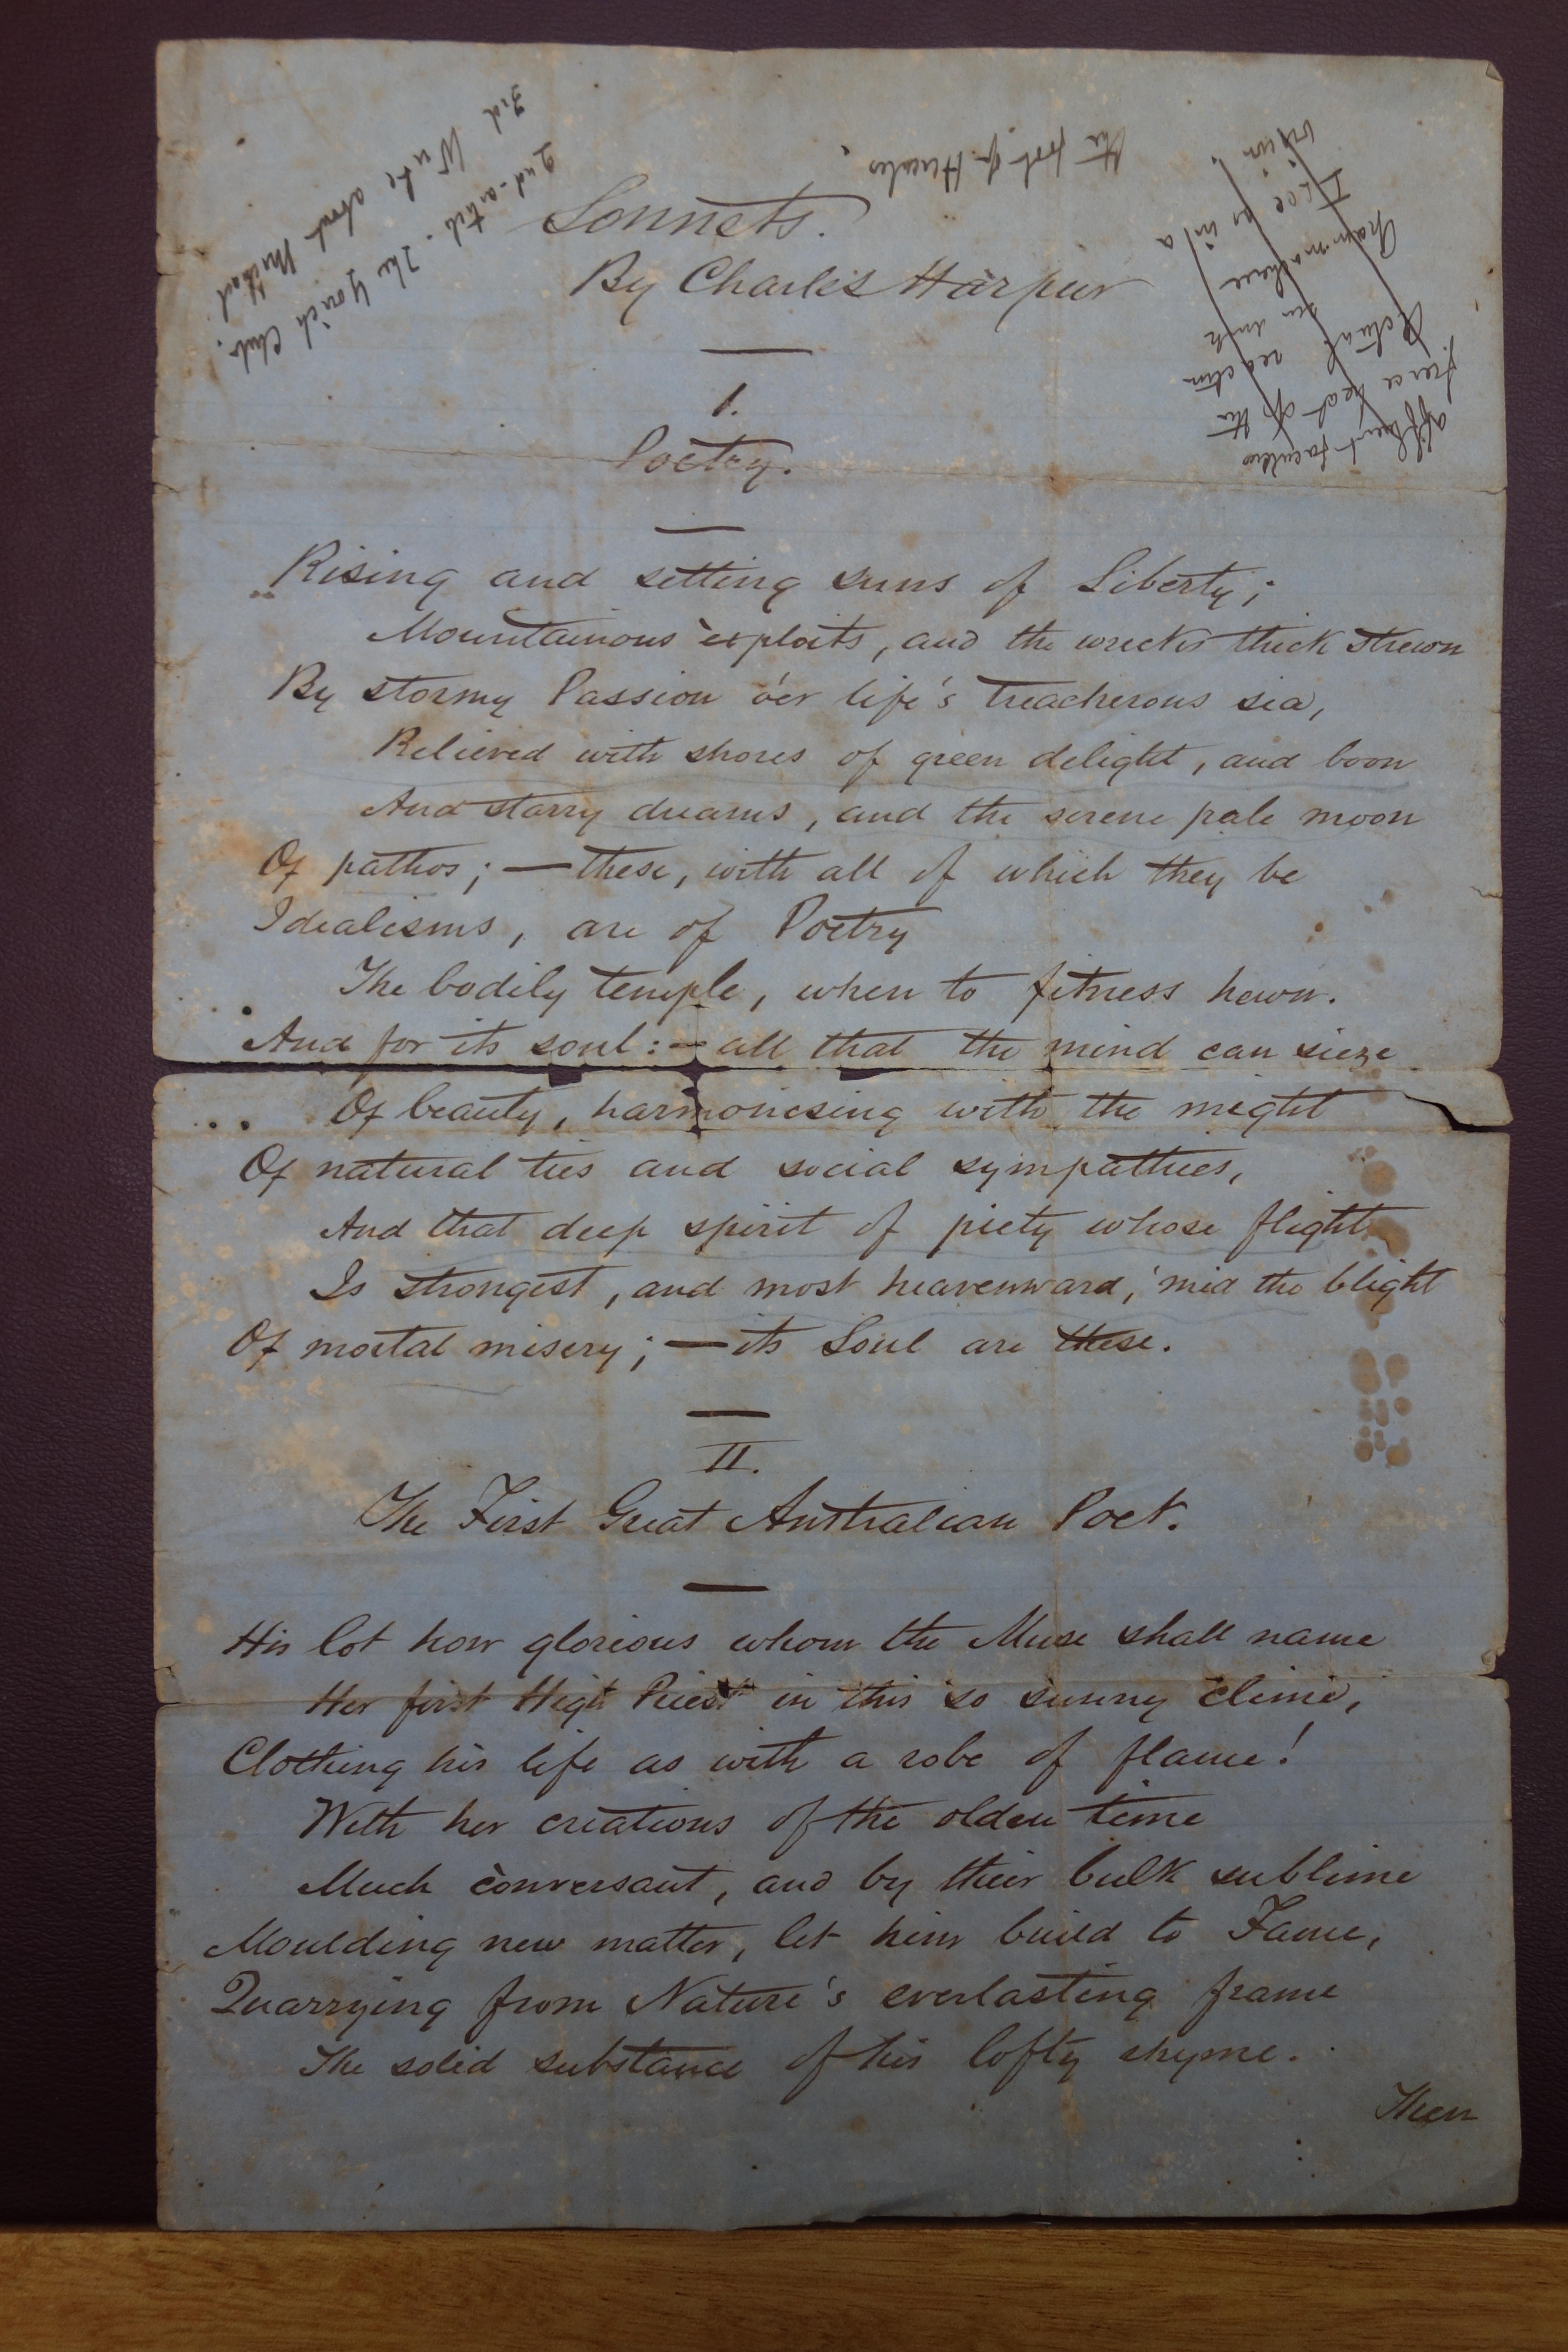 3rd Write about Method
2nd-article. The Yorick Club.
the foot of Hercules
Sonnets.
By Charles Harpur
1.
Poetry.
Rising and setting suns of Liberty;
Mountainous exploits, and the wrecks thick strewn
By stormy Passion o'er life's treacherous sea,
Relieved with shores of green delight, and boon
And starry dreams, and the serene pale moon
Of pathos; — these, with all of which they be
Idealisms, are of Poetry
The bodily temple, when to fitness hewn.
And for its soul: — all that the mind can sieze
Of beauty, harmonising with the might
Of natural ties and social sympathies,
And that deep spirit of piety whose flight
Is strongest, and most heavenward, 'mid the blight
Of mortal misery; — its Soul are these.
II.
The First Great Australian Poet.
His lot how glorious whom the Muse shall name
Her first High Priest in this so sunny clime,
Clothing his life as with a robe of flame!
With her creations of the olden time
Much conversant, and by their bulk sublime
Moulding new matter, let him build to Fame,
Quarrying from Nature's everlasting frame
The solid substance of his lofty rhyme.
Then